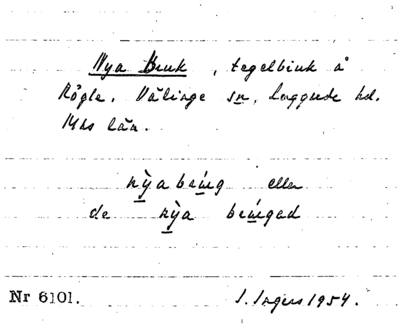 Nya Bruk, tegelbruk å
Rögle. Välinge sn, Luggude hd.
Mhs län.
nỳa brúg eller
de nỳa brúged
Nr 6101.
I. Ingers 1954.